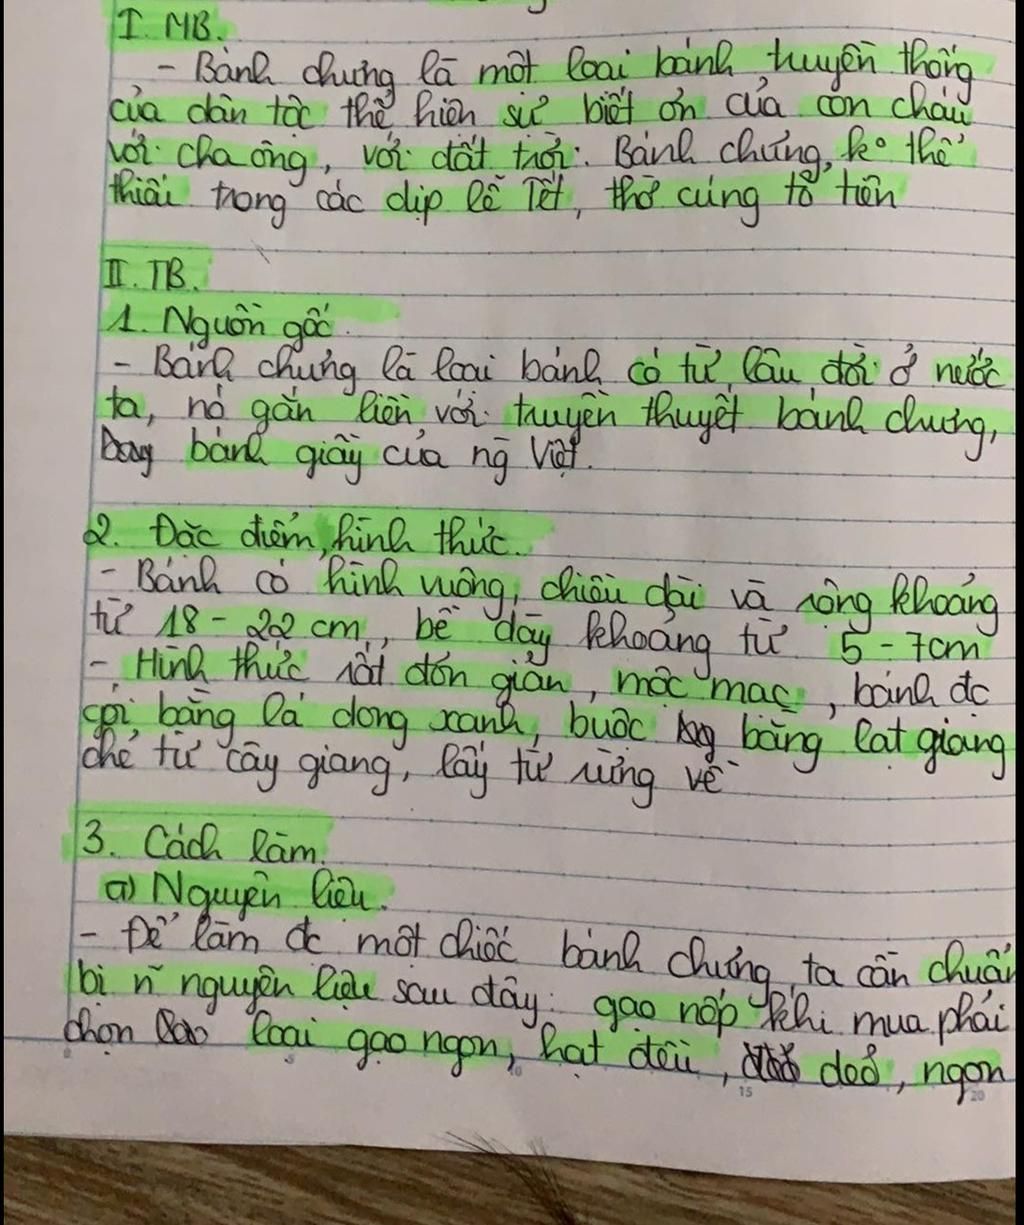 I. MB.
- Bánh chưng là một loại bánh truyền thống
của dân tộc thể hiện sự biết ơn của con cháu
với cha ông, với đất trời. Bánh chưng ko thể
thiếu trong các dịp lễ Tết, thờ cúng tổ tiên
II. TB.
1. Nguồn gốc.
- Bánh chưng là loại bánh có từ lâu đời ở nước
ta, nó gắn liền với truyền thuyết bánh chưng,
bánh giầy của ng Việt.
2. Đặc điểm, hình thức.
- Bánh có hình vuông, chiều dài và rộng khoảng
từ 18 - 22 cm, bề dày khoảng từ 5 - 7cm
- Hình thức rất đơn giản, mộc mạc, bánh đc
gói bằng lá dong xanh, buộc bằng lạt giang
chẻ từ cây giang, lấy từ rừng về
3. Cách làm.
a) Nguyên liệu.
- Để làm đc một chiếc bánh chưng ta cần chuẩn
bị n~ nguyên liệu sau đây: gạo nếp khi mua phải
chọn loại gạo ngon, hạt đều, dẻo, ngon